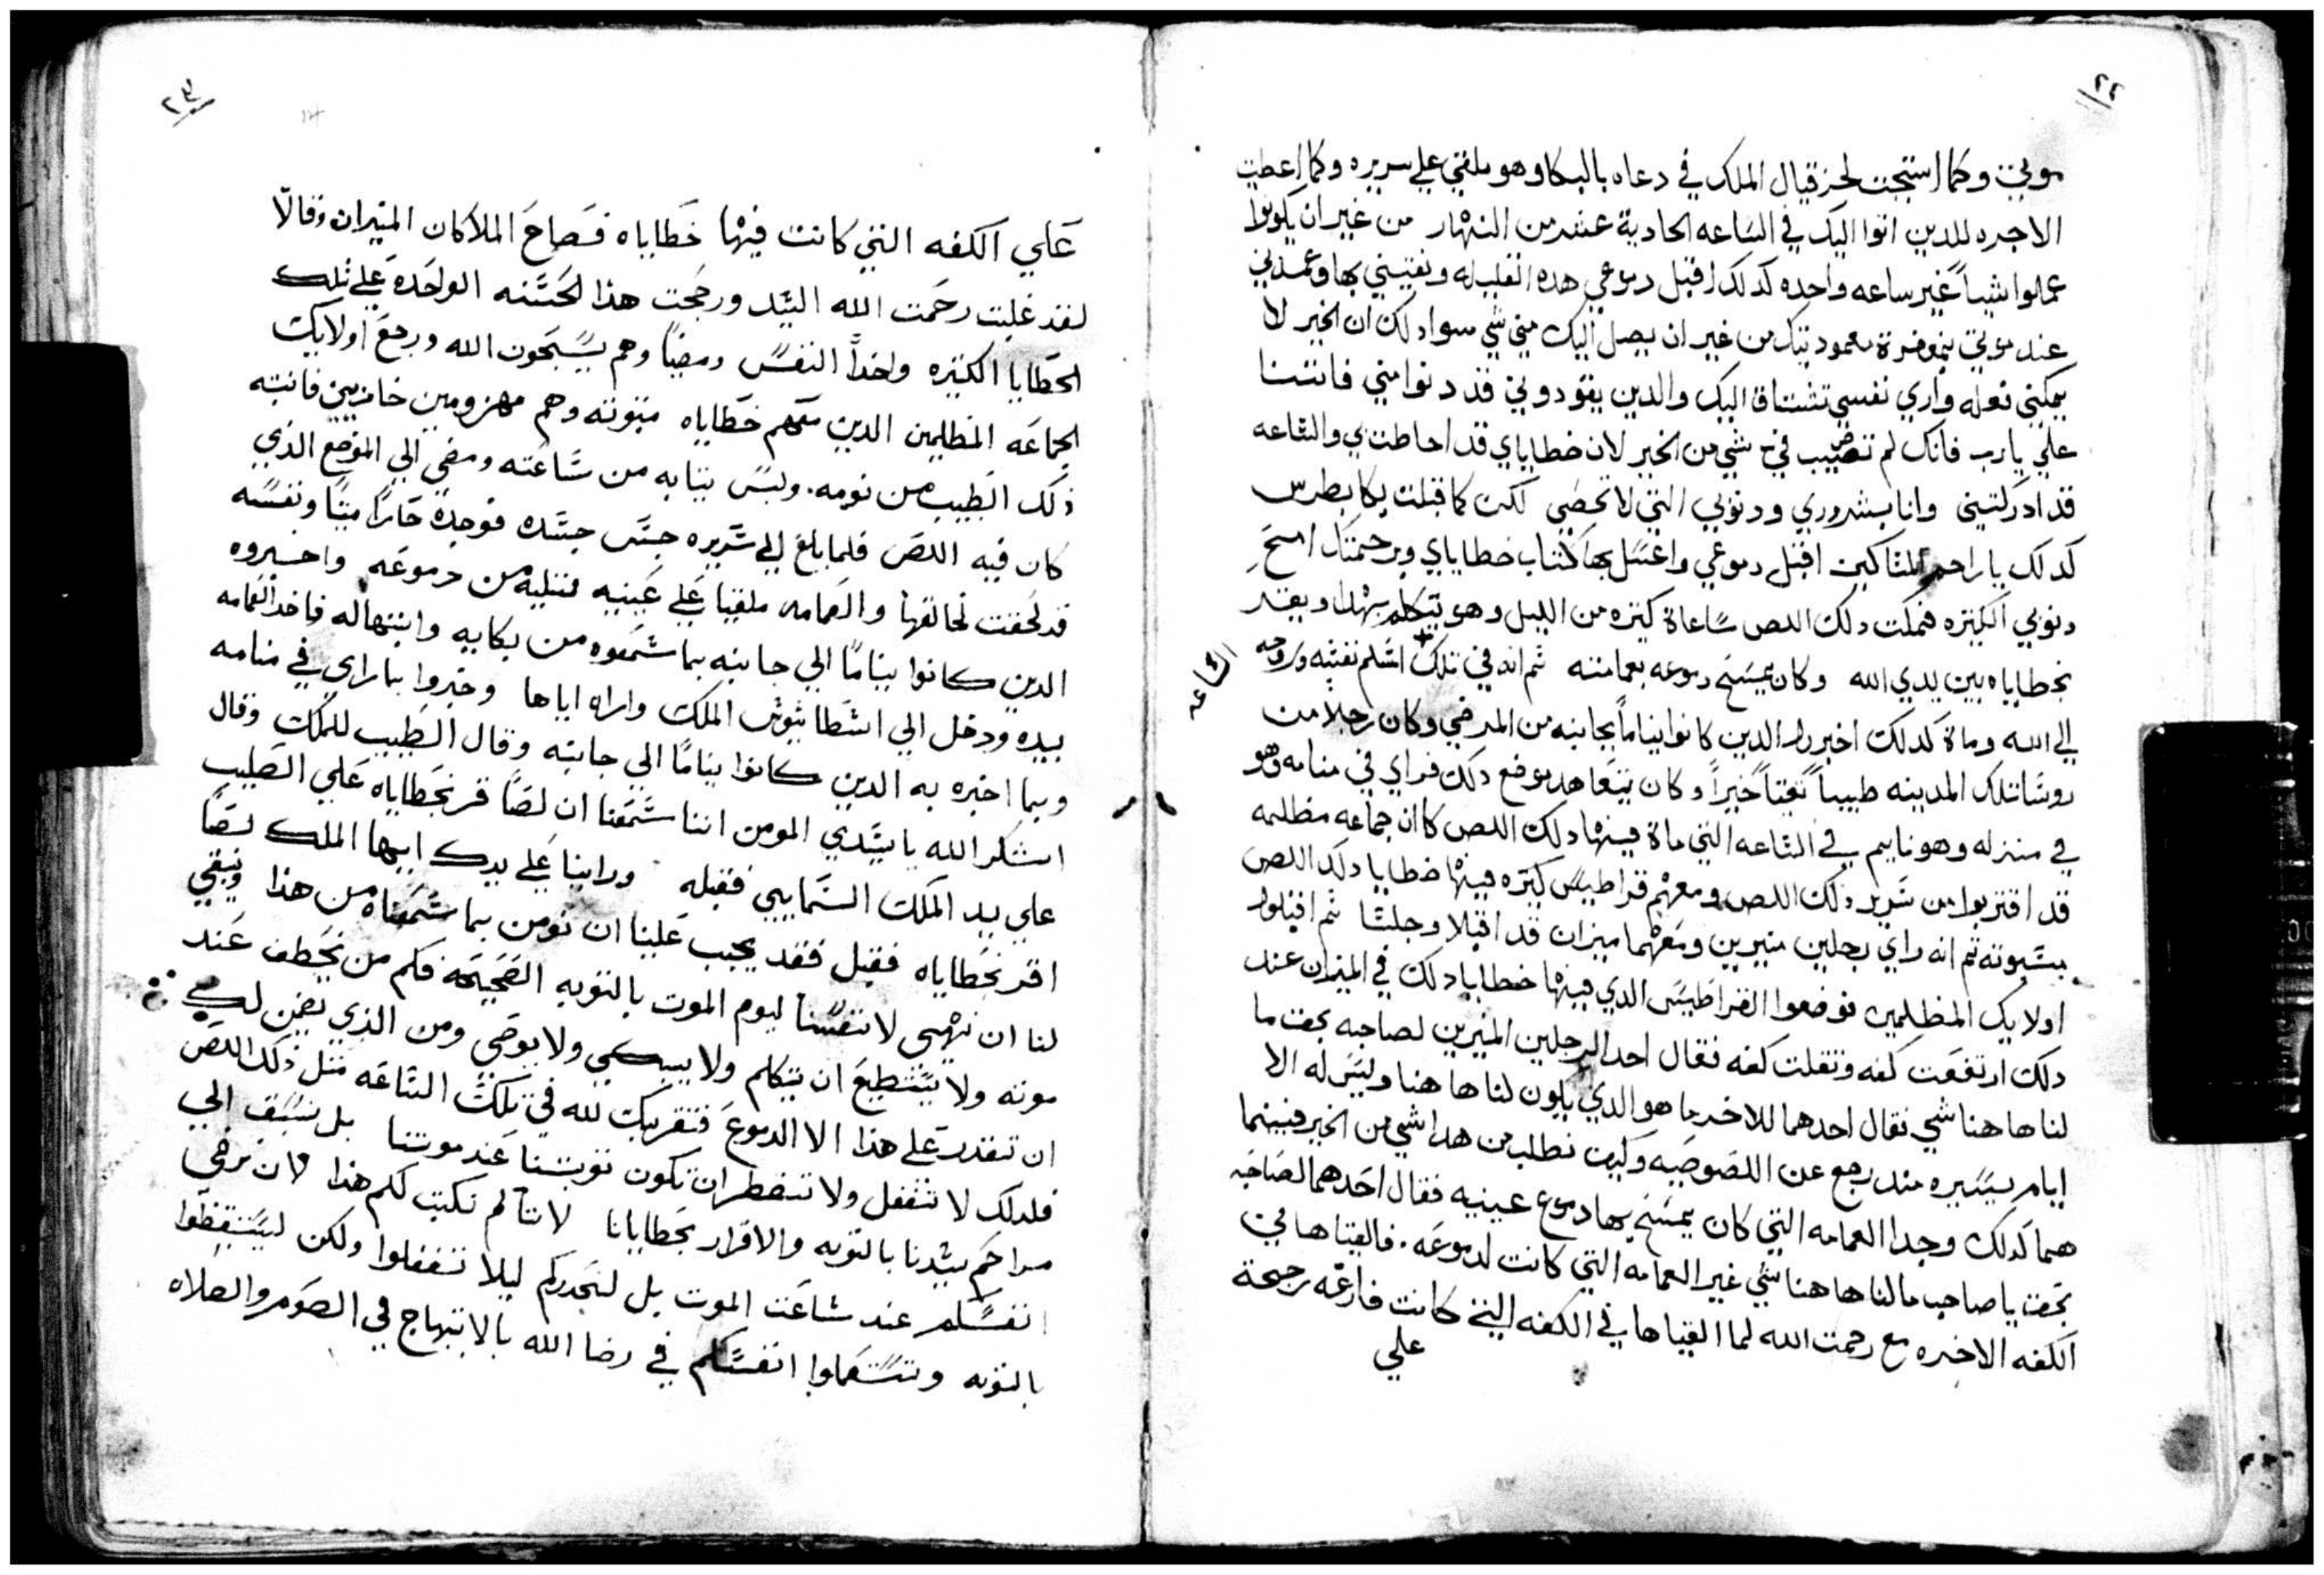 ٢٢
موتي وكما استجبت لحزقيال الملك في دعاه بالبكا وهو ملقي علي سريره وكما اعطيت
الاجره للدين اتوا اليك في الساعه الحادية عشر من النهار من غير ان يكونوا
عملوا شياً غير ساعه واحده كدلك اقبل دموعي هده القليله ونقيني بها وعمدني
عند موتي بمغفرة معموديتك من غير ان يصل اليك مني شي سوا دلك لان الخير لا
يمكنني فعله واري نفسي تشتاق اليك والدين يقودوني قد دنوا مني فاتتنا
علي يارب فانك لم تصيب في شي من الخير لان خطاياي قد احاطت بي والساعه
قد ادركتني وانا بشروري ودنوبي التي لا تحصي لكن كما قبلت بكا بطرس
كدلك يا راحم المساكين اقبل دموعي واغسل بها كتاب خطاياي وبرحمتك امح
دنوبي الكتيره فمكت دلك اللص ساعاة كتيره من الليل وهو يتكلم بهدا ويقر
بخطاياه بين يدي الله وكان يمسح دموعه بعمامته تم انه في تلك اسلم نفسه وروحه
الساعه
الي الله وماة كدلك اخبروا الدين كانوا نياماً بجانبه من المرضي وكان رجلاً من
روسا تلك المدينه طبيباً تقتاً خيراً وكان يتعاهد موضع دلك فراي في منامه وهو
في منزله وهو نايم في الساعه التي ماة فيها دلك اللص كان جماعه مظلمه
قد اقتربوا من سرير دلك اللص ومعهم قراطيس كتيره فيها خطايا دلك اللص
تم انه راي رجلين منيرين ومعهما ميزان قد اقبلا وجلسا تم اقبلوا
اولايك المظلمين فوضعوا القراطيس الدي فيها خطايا دلك في الميزان عند
دلك ارتفعت كفه وتقلت كفه فقال احد الرجلين المنيرين لصاحبه بحق ما
لنا ها هنا شي فقال احدهما للاخر ما هو الدي يكون لنا ها هنا وليس له الا
ايام يسيره مند رجع عن اللصوصيه وكيف نطلب من هدا شي من الخير فبينما
هما كدلك وجدا العمامه التي كان يمسح بها دموع عينيه فقال احدهما لصاحبه
بحق يا صاحب ما لنا ها هنا شي غير العمامه التي كانت لدموعه. فالقياها في
الكفه الاخره مع رحمت الله لما القياها في الكفه التي كانت فارغه رجحة
علي
٢٣
علي الكفه التي كانت فيها خطاياه فصاح الملاكان المنيران وقالا
لقد غلبت رحمت الله السيد ورجحت هذا الحسنه الواحده علي تلك
الخطايا الكتيره واخدا النفس ومضيا وهم يسبحون الله ورجع اولايك
الجماعه المظلمين الدين معهم خطاياه مبتوته وهم مهزومين خازيين فانتبه
ذلك الطبيب من نومه. ولبس تيابه من ساعته ومضي الي الموضع الذي
كان فيه اللص فلما بلغ الي سريره جس جسده فوجده حاراً ميتاً ونفسه
قد لحقت لخالقها والعمامه ملقيا علي عينيه مبتليه من دموعه واخبروه
الدين كانوا نياماً الي جانبه بما سمعوه من بكايه وابتهاله فاخد العمامه
بيده ودخل الي الملك واراه اياها وخبروا بما راي في منامه
وبما اخبره به الدين كانوا نياماً الي جانبه وقال الطبيب للملك وقال
اشكر الله يا سيدي المومن اننا سمعنا ان لصاً قر بخطاياه علي الصليب
علي يد الملك السمايي فقبله وراينا علي يدك ايها الملك لصاً
اقر بخطاياه فقبل فقد يجب علينا ان نومن بما سمعناه من هذا وينبغي
لنا ان نهيي لانفسنا ليوم الموت بالتوبه الصحيحه فكم من يخطف عند
موته ولا يستطيع ان يتكلم ولا يبكي ولا يوصي ومن الذي يضمن لك
ان تقدر علي هذا الا الدموع فتقربك لله في تلك الساعه متل ذلك اللص
فلدلك لا تغفل ولا تنضطر ان تكون توبتنا عند موتنا بل نسبق الي
مراحم سيدنا بالتوبه والاقرار بخطايانا لاننا لم نكتب لكم هذا
انفسكم عند ساعت الموت بل لنحدركم ليلا تغفلوا ولكن ليستيقظوا
بالتوبه وتستعملوا انفسكم في رضا الله بالابتهاج في الصوم والصلاه